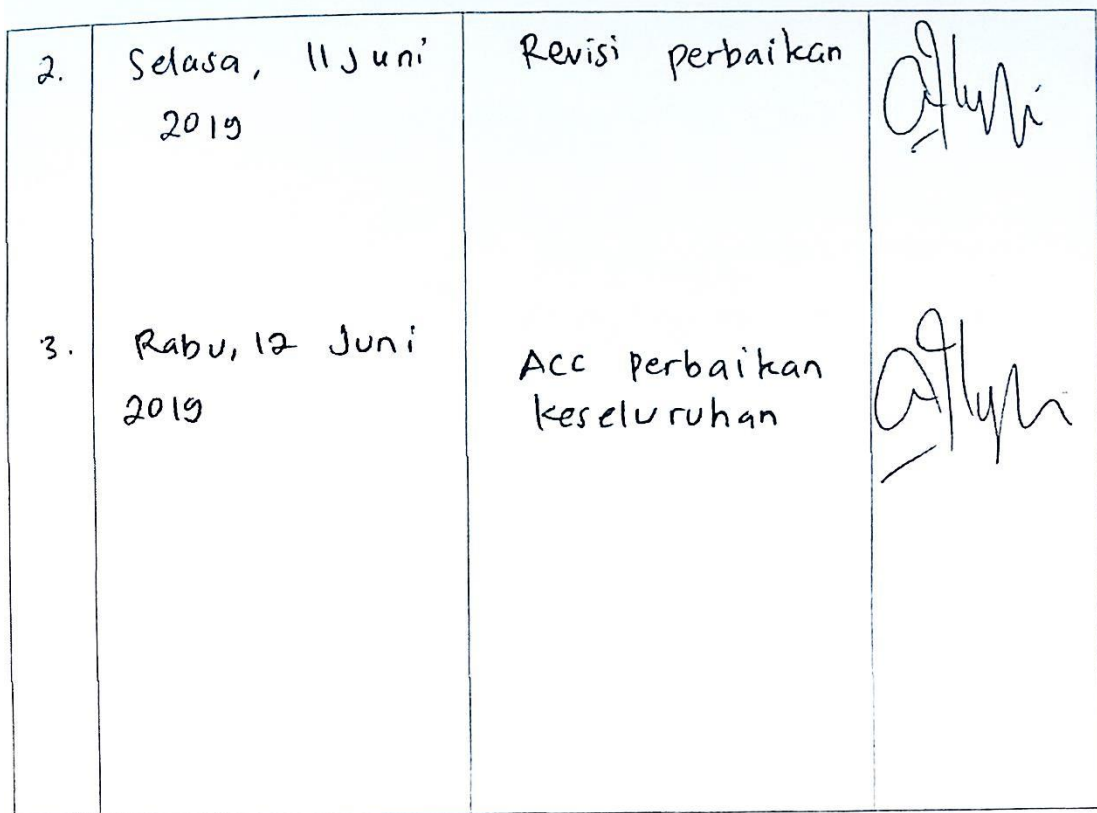 2.
Selasa, 11 Juni
2019
Revisi perbaikan
3.
Rabu, 12 Juni
2019
ACC perbaikan
keseluruhan